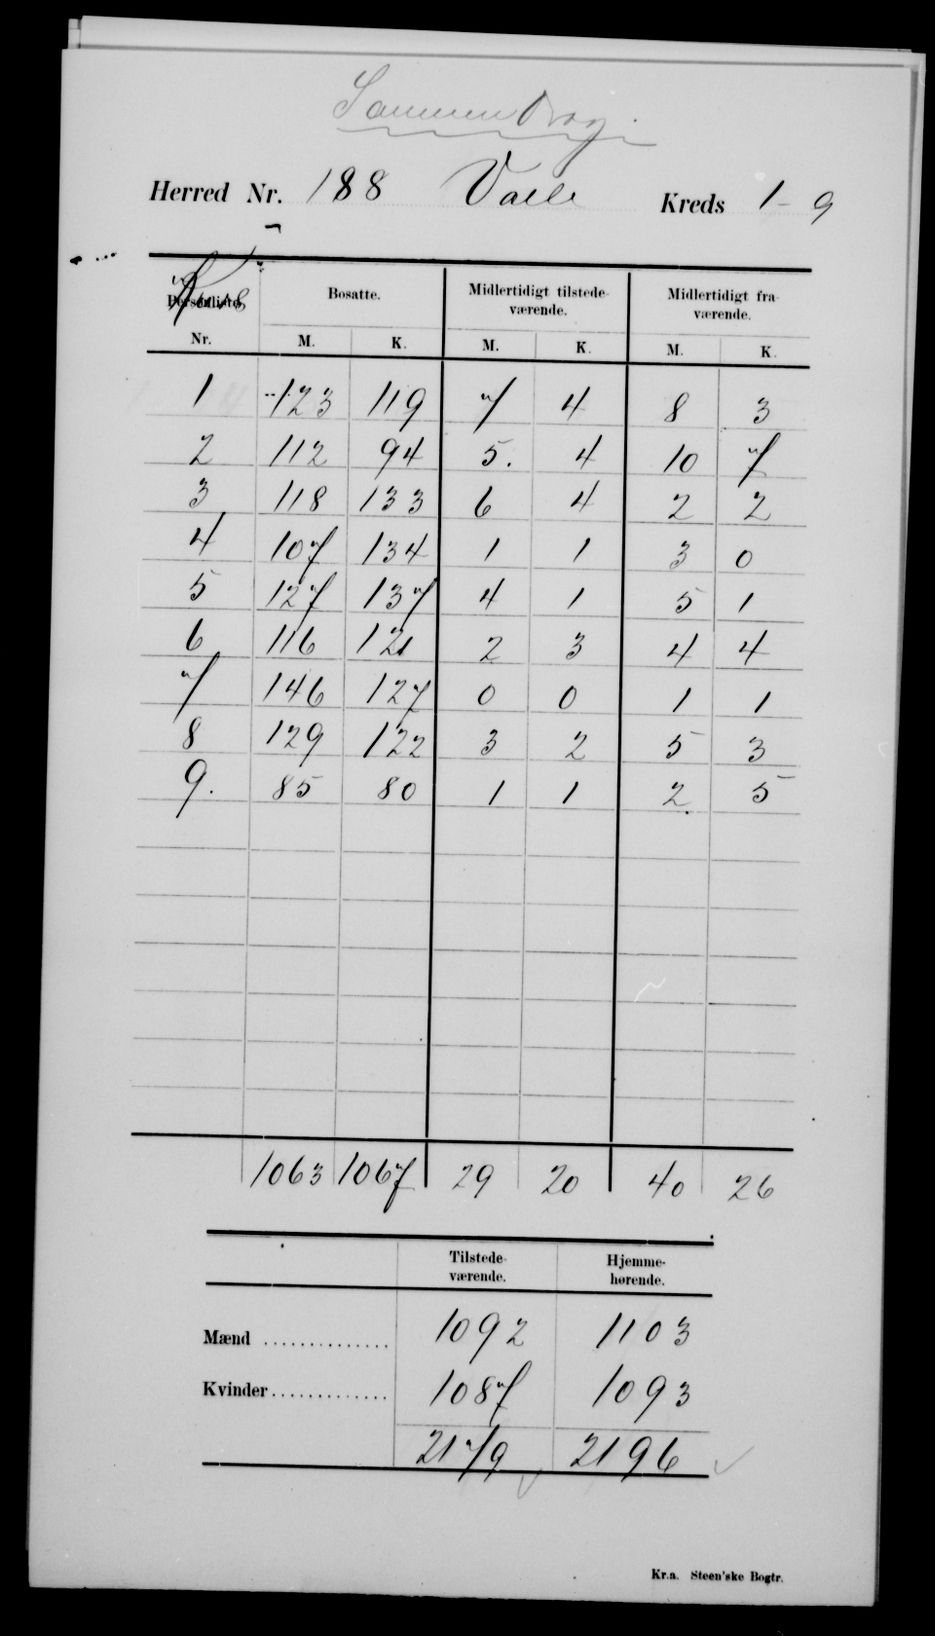 Sammendrag.
Herred Nr. 188 Valle Kreds 1-9
Kreds
Personliste Bosatte. Midlertidigt tilstede- Midlertidigt fra-
værende. værende.
Nr. M. K. M. K. M. K.
1 123 119 7 4 8 3
2 112 94 5. 4 10 7
3 118 133 6 4 2 2
4 107 134 1 1 3 0
5 127 137 4 1 5 1
6 116 121 2 3 4 4
7 146 127 0 0 1 1
8 129 122 3 2 5 3
9. 85 80 1 1 2 5
1063 1067 29 20 40 26
Tilstede- Hjemme-
værende. hørende.
Mænd .............. 1092 1103
Kvinder............. 1087 1093
2179 2196
Kr.a. Steen'ske Bogtr.